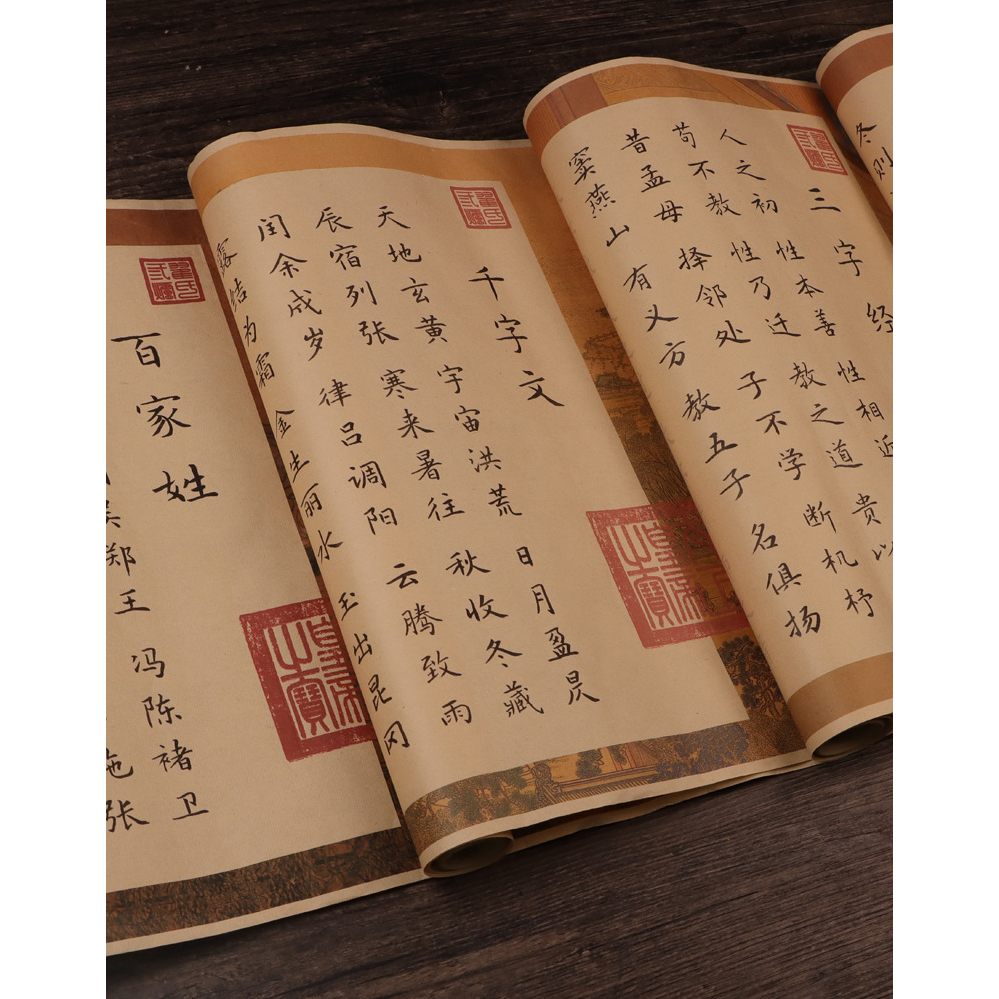 冬则
三字经
人之初 性本善 性相近
苟不教 性乃迁 教之道 贵以
昔孟母 择邻处 子不学 断机杼
窦燕山 有义方 教五子 名俱扬
皇帝之寶
千字文
天地玄黄 宇宙洪荒 日月盈昃
辰宿列张 寒来暑往 秋收冬藏
闰余成岁 律吕调阳 云腾致雨
露结为霜 金生丽水 玉出昆冈
皇帝之寶
百家姓
吴郑王 冯陈褚卫
施张